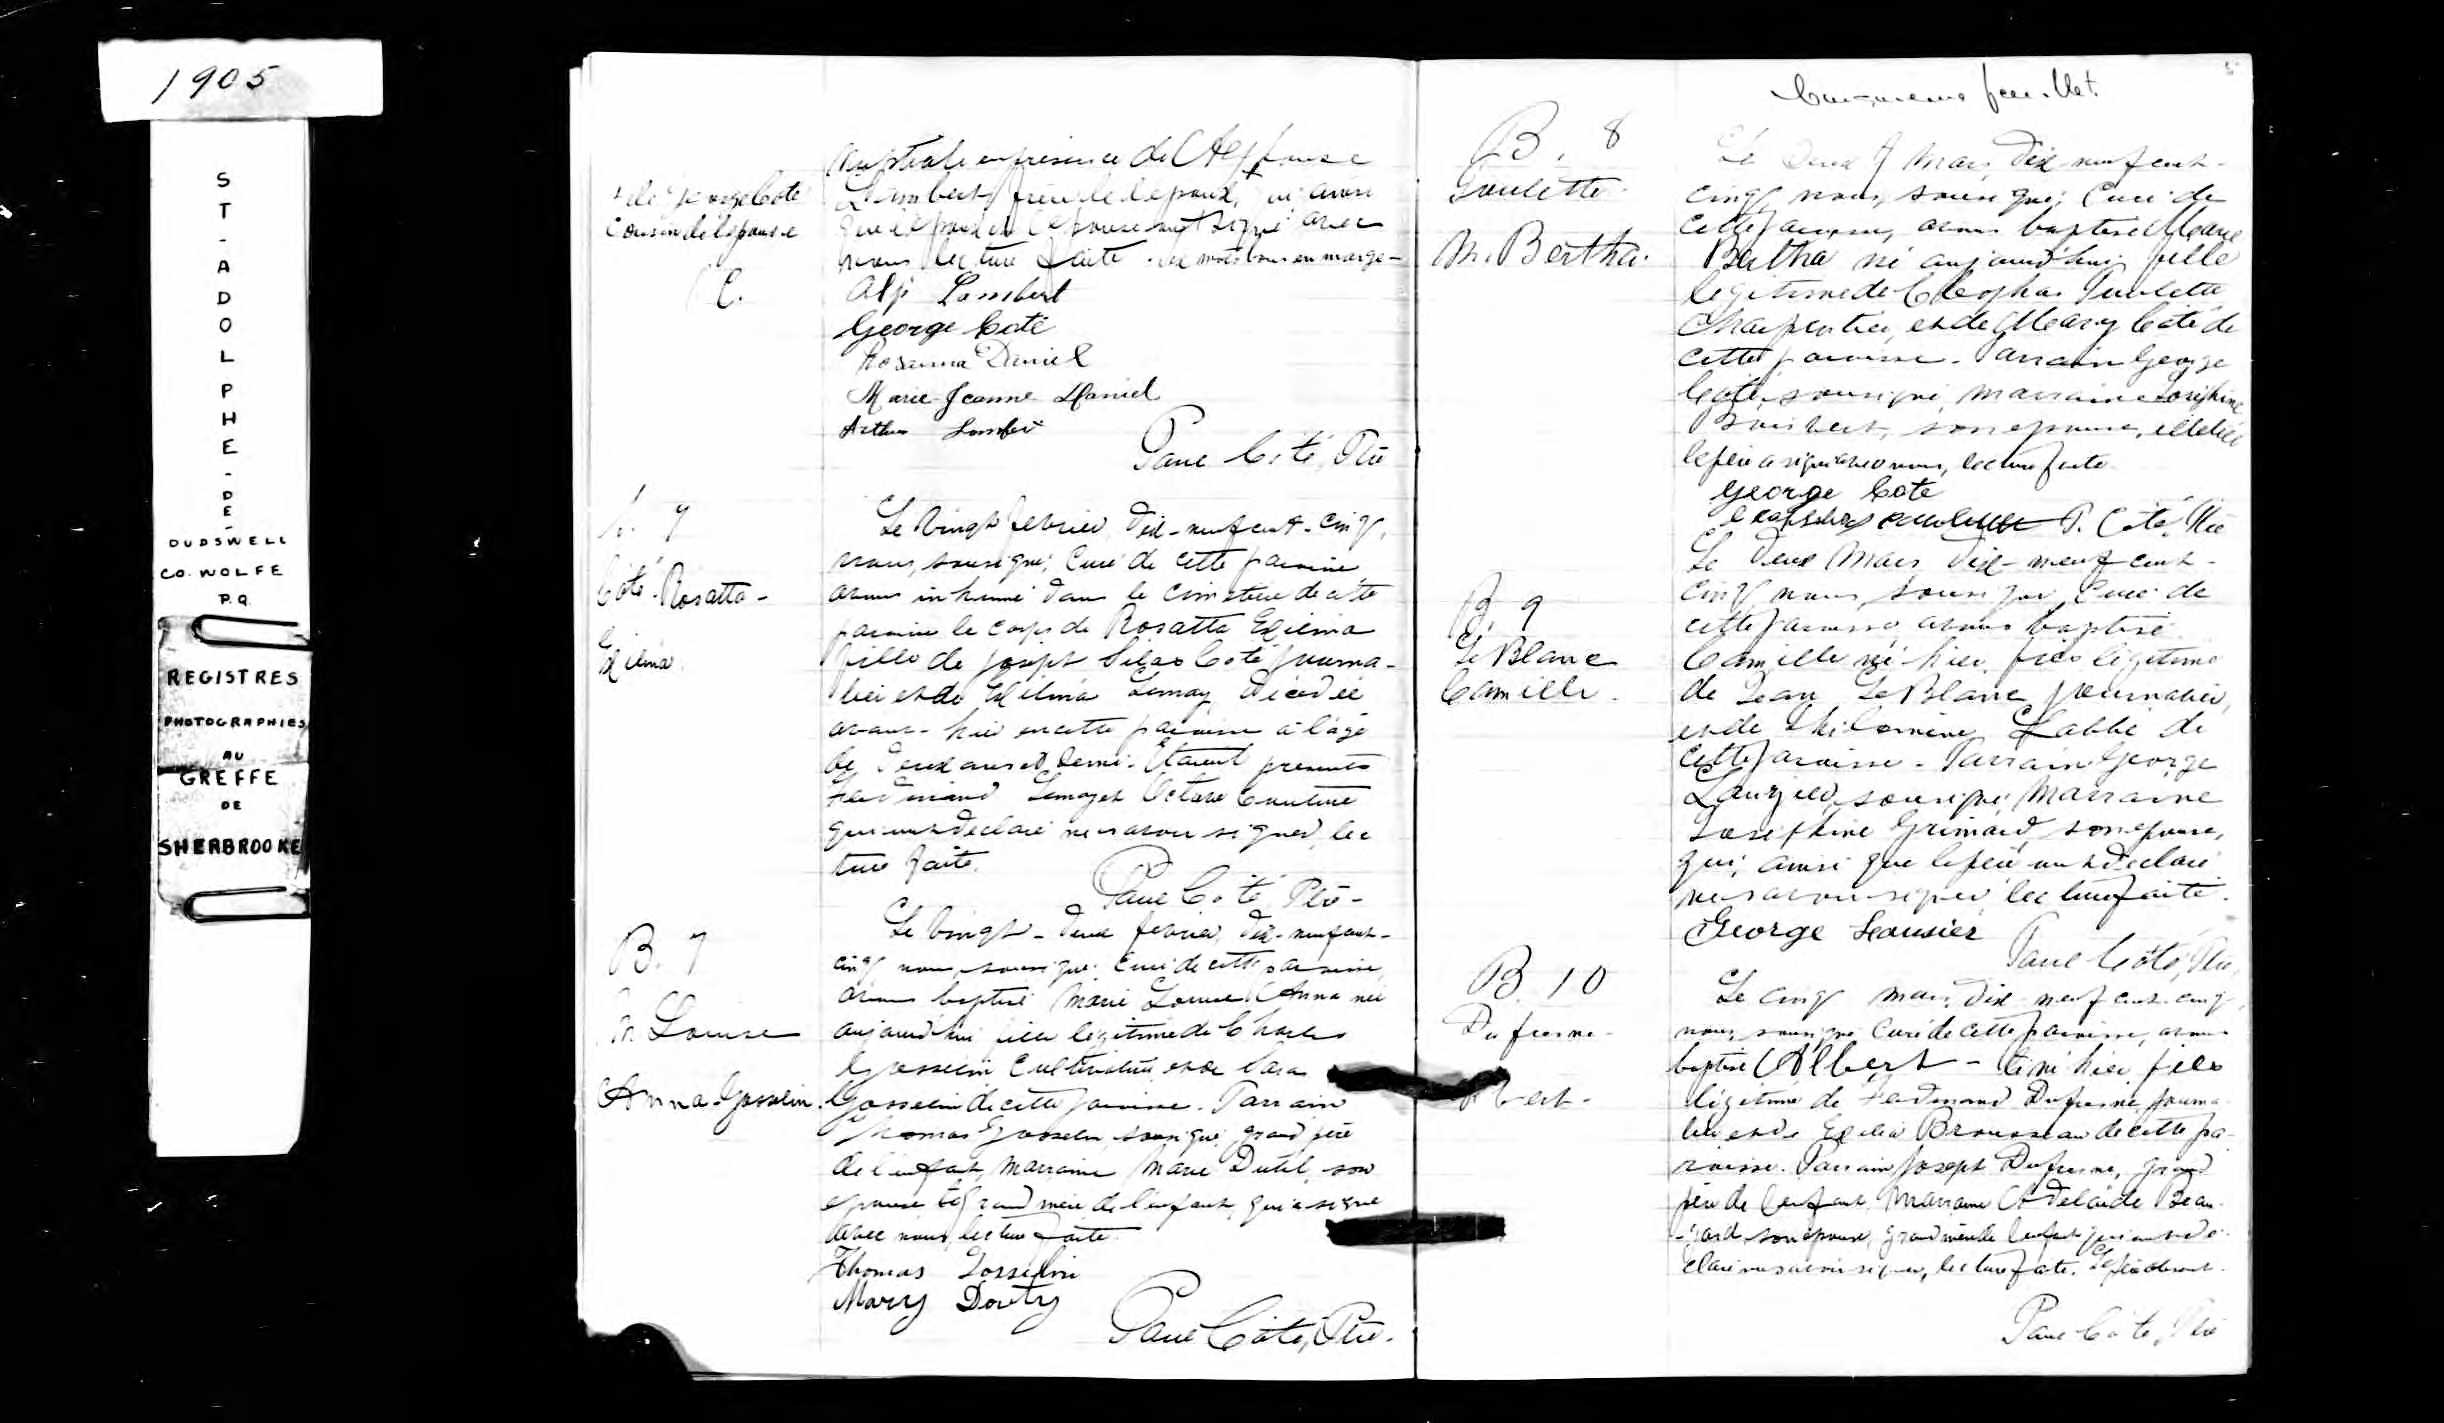 1905
ST-ADOLPHE-DE-
DUDSWELL
CO. WOLFE
P.Q.
REGISTRES
PHOTOGRAPHIES
AU
GREFFE
DE
SHERBROOKE
+ de George Coté
cousin de l'épouse
P.C.
nuptiale en présence de Alphonse
Lambert, frère de l'époux, + qui ainsi
que l'époux et l'épouse ont signé avec
nous lecture faite. mots en marge-
Alp Lambert
George Coté
Rosanna Daniel
Marie-Jeanne Daniel
Arthur Lambert
Paul Coté, Ptre
7
Coté Rosatta-
Exilina
Le vingt fevrier, dix-neuf cent-cinq,
nous, soussigné, Curé de cette paroisse
avons inhumé dans le cimetière de cette
paroisse le corps de Rosatta Exilina
fille de Joseph Coté journa-
lier et de Exilina Lemay, décédée
avant-hier en cette paroisse à l'âge
de deux ans et demi. Etaient présents
Ferdinand Lemay et Octave Couture
qui ont déclaré ne savoir signer, lec
ture faite.
Paul Coté Ptre-
B. 7
M. Louise
Anna-Gosselin.
Le vingt-deux fevrier, dix-neuf cent-
cinq nous, soussigné, Curé de cette paroisse,
avons baptisé Marie Louise Anna née
aujourd'hui fille légitime de Charles
Gosselin Cultivateur et de Sara
Gosselin de cette paroisse. Parrain
Thomas Gosselin, soussigné, grand père
de l'enfant, marraine Marie Dutil, son
epouse et grand mère de l'enfant, qui a signé
avec nous, lecture faite.
Thomas Gosselin
Mary Douty
Paul Côté, Ptre.
5
Cinquieme feuillet.
B. 8
Goulette.
M. Bertha.
Le deux Mars, dix-neuf cent-
cinq, nous, soussigné, Curé de
cette paroisse, avons baptisé Marie
Bertha né aujourd'hui, fille
légitime de Cléophas Goulette
Charpentier, et de Mary Coté de
cette paroisse. Parrain George
Coté, soussigné, marraine Joséphine
son epouse,
le père a signé avec nous, lecture faite.
George Coté
P. Coté, Ptre
B. 9
Le Blanc
Camille.
Le deux Mars dix-neuf cent-
cinq nous, soussigné Curé de
cette paroisse avons baptisé
Camille né hier, fils légitime
de Jean Le Blanc journalier,
et de Philomène Labbé de
cette paroisse. Parrain George
Lauzier, soussigné, Marraine
Joséphine Grimard, son epouse,
qui, ainsi que le père ont déclaré
ne savoir signer, lecture faite.
George Lausier
Paul Côté, Ptre,
B. 10
Dufresne-
Albert-
Le cinq mars, dix neuf cent-cinq,
nous, soussigné, Curé de cette paroisse, avons
baptisé Albert - né hier, fils
légitime de Ferdinand Dufresne, journa-
lier et de Exilia Brousseau de cette pa-
roisse. Parrain Joseph Dufresne, grand
père de l'enfant, Marraine Adelaïde Beau-
-gard son epouse, grand mère de l'enfant qui ont dé-
claré ne savoir signer, lecture faite. Le père absent.
Paul Coté, Ptre